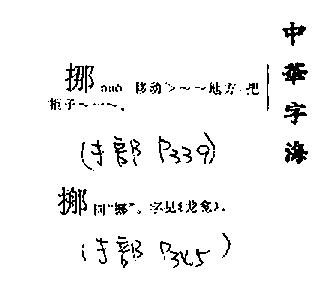 中華字海
挪 nuó 移动▷～～地方|把
柜子～一～。
(扌部 P339)
㨙 同“挪”。字见《龙龛》。
(扌部 P345)